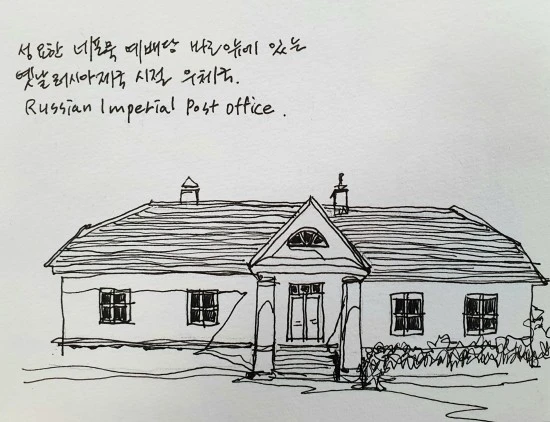 성요한 네포묵 예배당 바로 옆에 있는
옛날 러시아제국 시절 우체국.
Russian Imperial Post office.